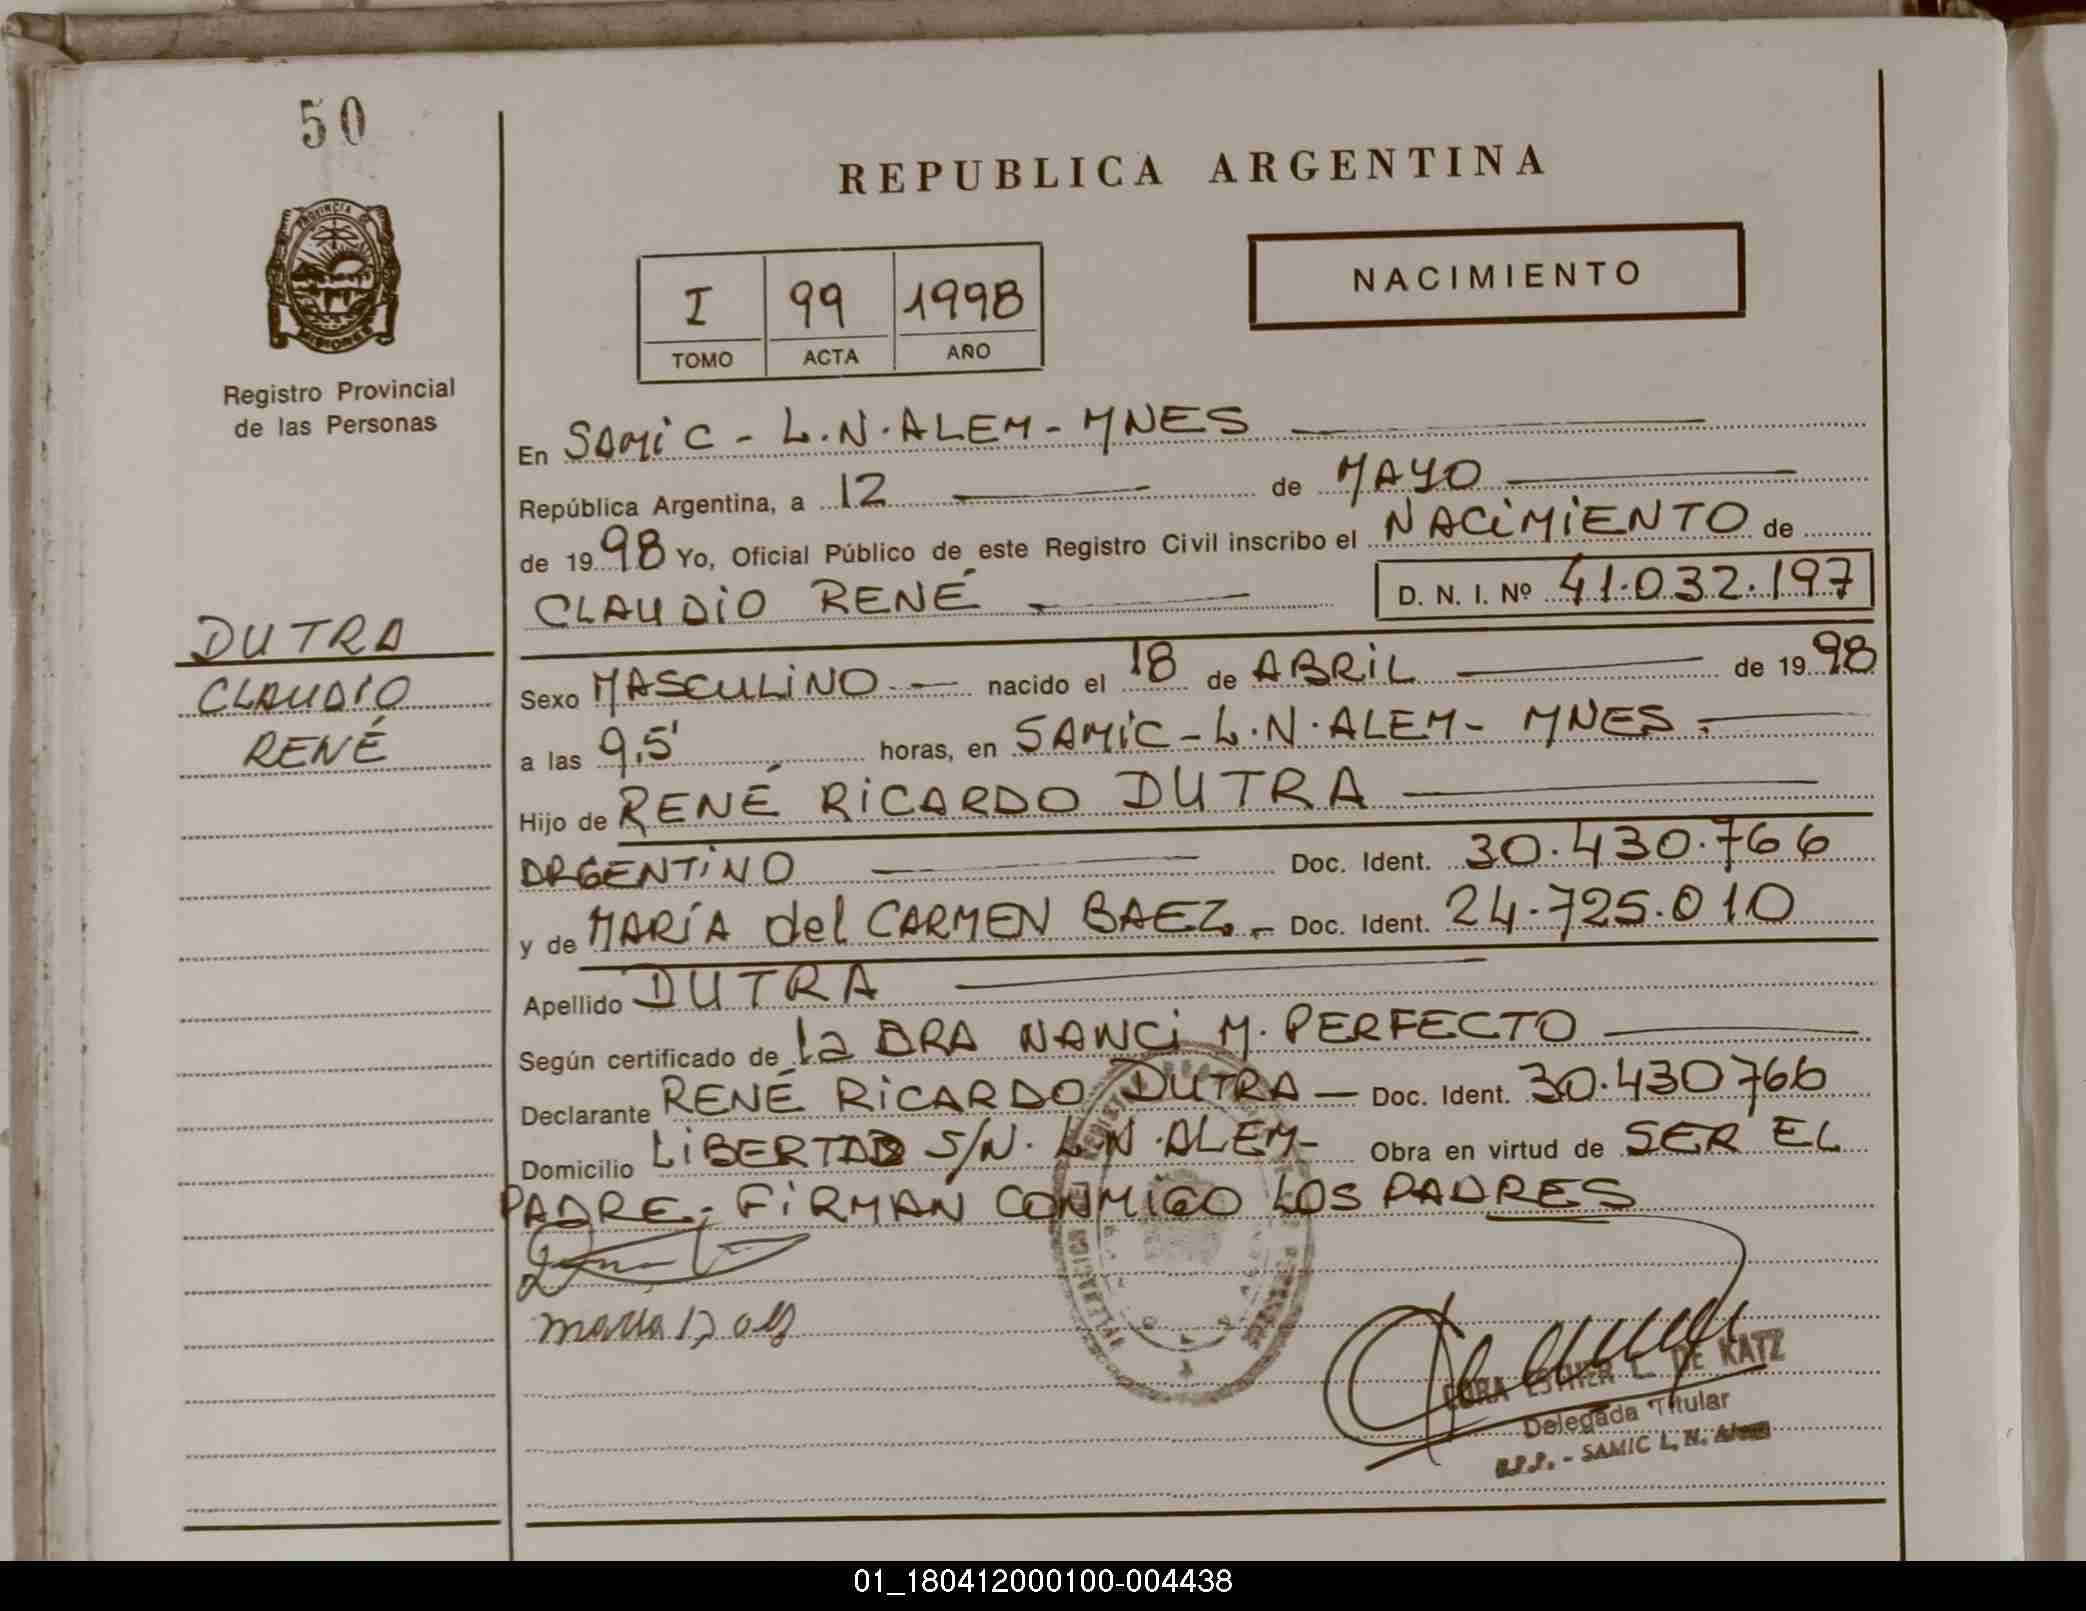 50
REPUBLICA ARGENTINA
PROVINCIA DE
MISIONES
Registro Provincial
de las Personas
I 99 1998
TOMO ACTA AÑO
NACIMIENTO
En SAMIC - L.N. ALEM - MNES
República Argentina, a 12 de MAYO
de 1998 Yo, Oficial Público de este Registro Civil inscribo el NACIMIENTO de
CLAUDIO RENÉ D. N. I. Nº 41.032.197
DUTRA
CLAUDIO
RENÉ
Sexo MASCULINO nacido el 18 de ABRIL de 1998
a las 9,5' horas, en SAMIC - L.N. ALEM - MNES.
Hijo de RENÉ RICARDO DUTRA
ARGENTINO Doc. Ident. 30.430.766
y de MARÍA del CARMEN BAEZ.- Doc. Ident. 24.725.010
Apellido DUTRA
Según certificado de la DRA NANCI M. PERFECTO
Declarante RENÉ RICARDO DUTRA — Doc. Ident. 30.430766
Domicilio LIBERTAD S/N. L.N. ALEM - Obra en virtud de SER EL
PADRE. FIRMAN CONMIGO LOS PADRES
CORA ESTHER L. DE KATZ
Delegada Titular
R.P.P. - SAMIC L. N. Alem
01_180412000100-004438